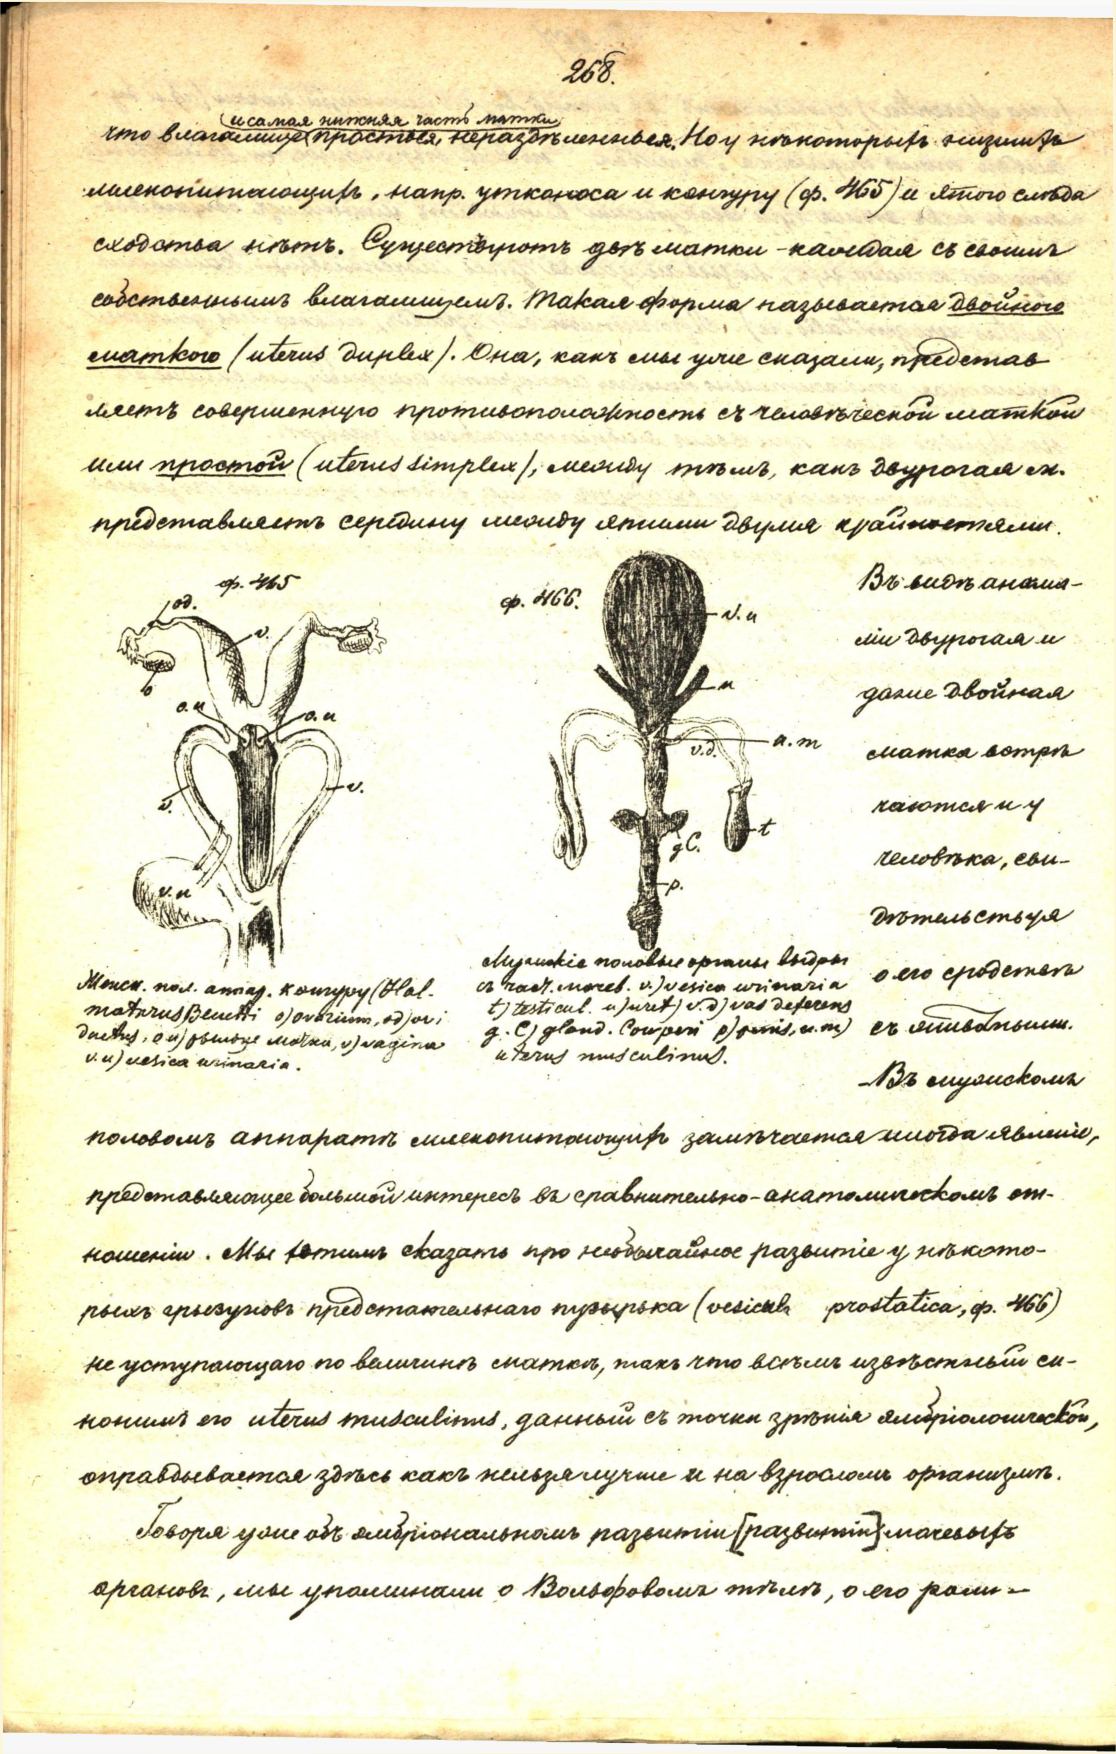 268.
и самая нижняя часть матки
что влагалище простыя, нераздѣленныя. Но у нѣкоторыхъ низшихъ
млекопитающихъ, напр. утконоса и кенгуру (ф. 465) и этого слѣда
сходства нѣтъ. Существуютъ двѣ матки – каждая съ своимъ
собственнымъ влагалищемъ. Такая форма называется двойною
маткою (uterus duplex). Она, какъ мы уже сказали, представ
ляетъ совершенную противоположность съ человѣческой маткой
или простой (uterus simplex), между тѣмъ, какъ двурогая м.
представляетъ середину между этими двумя крайностями.
ф. 465
od.
v.
o
o.u
o.u
v.
v.
v.u
Женск. пол. аппар. кенгуру (Hal-
maturus Benetti o) ovarium, od) ovi
ductus, o u) рыльце матки, v) vagina
v. u) vesica urinaria.
ф. 466.
v. u
u
u. m
v.d.
t
g C.
p.
Мужскіе половые органы выдры
съ част. мочев. v.) vesica urinaria
t) testicul. u) uret) v. d) vas deferens
g. C) gland. Cowperi p) penis, u. m)
uterus musculinus.
Въ видѣ анома-
ліи двурогая и
даже двойная
матка встрѣ
чаются и у
человѣка, сви-
дѣтельствуя
о его сродствѣ
съ животными.
Въ мужскомъ
половомъ аппаратѣ млекопитающихъ замѣчается иногда явленіе,
представляющее большой интересъ въ сравнительно-анатомическомъ от-
ношеніи. Мы хотимъ сказать про необычайное развитіе у нѣкото-
рыхъ грызуновъ предстательнаго пузырька (vesicula prostatica, ф. 466)
не уступающаго по величинѣ маткѣ, такъ что всѣмъ извѣстный си-
нонимъ его uterus musculinus, данный съ точки зрѣнія эмбріологической,
оправдывается здѣсь какъ нельзя лучше и на взросломъ организмѣ.
Говоря уже объ эмбріональномъ развитіи [развитіи] мочевыхъ
органовъ, мы упоминали о Вольфовомъ тѣлѣ, о его роли –